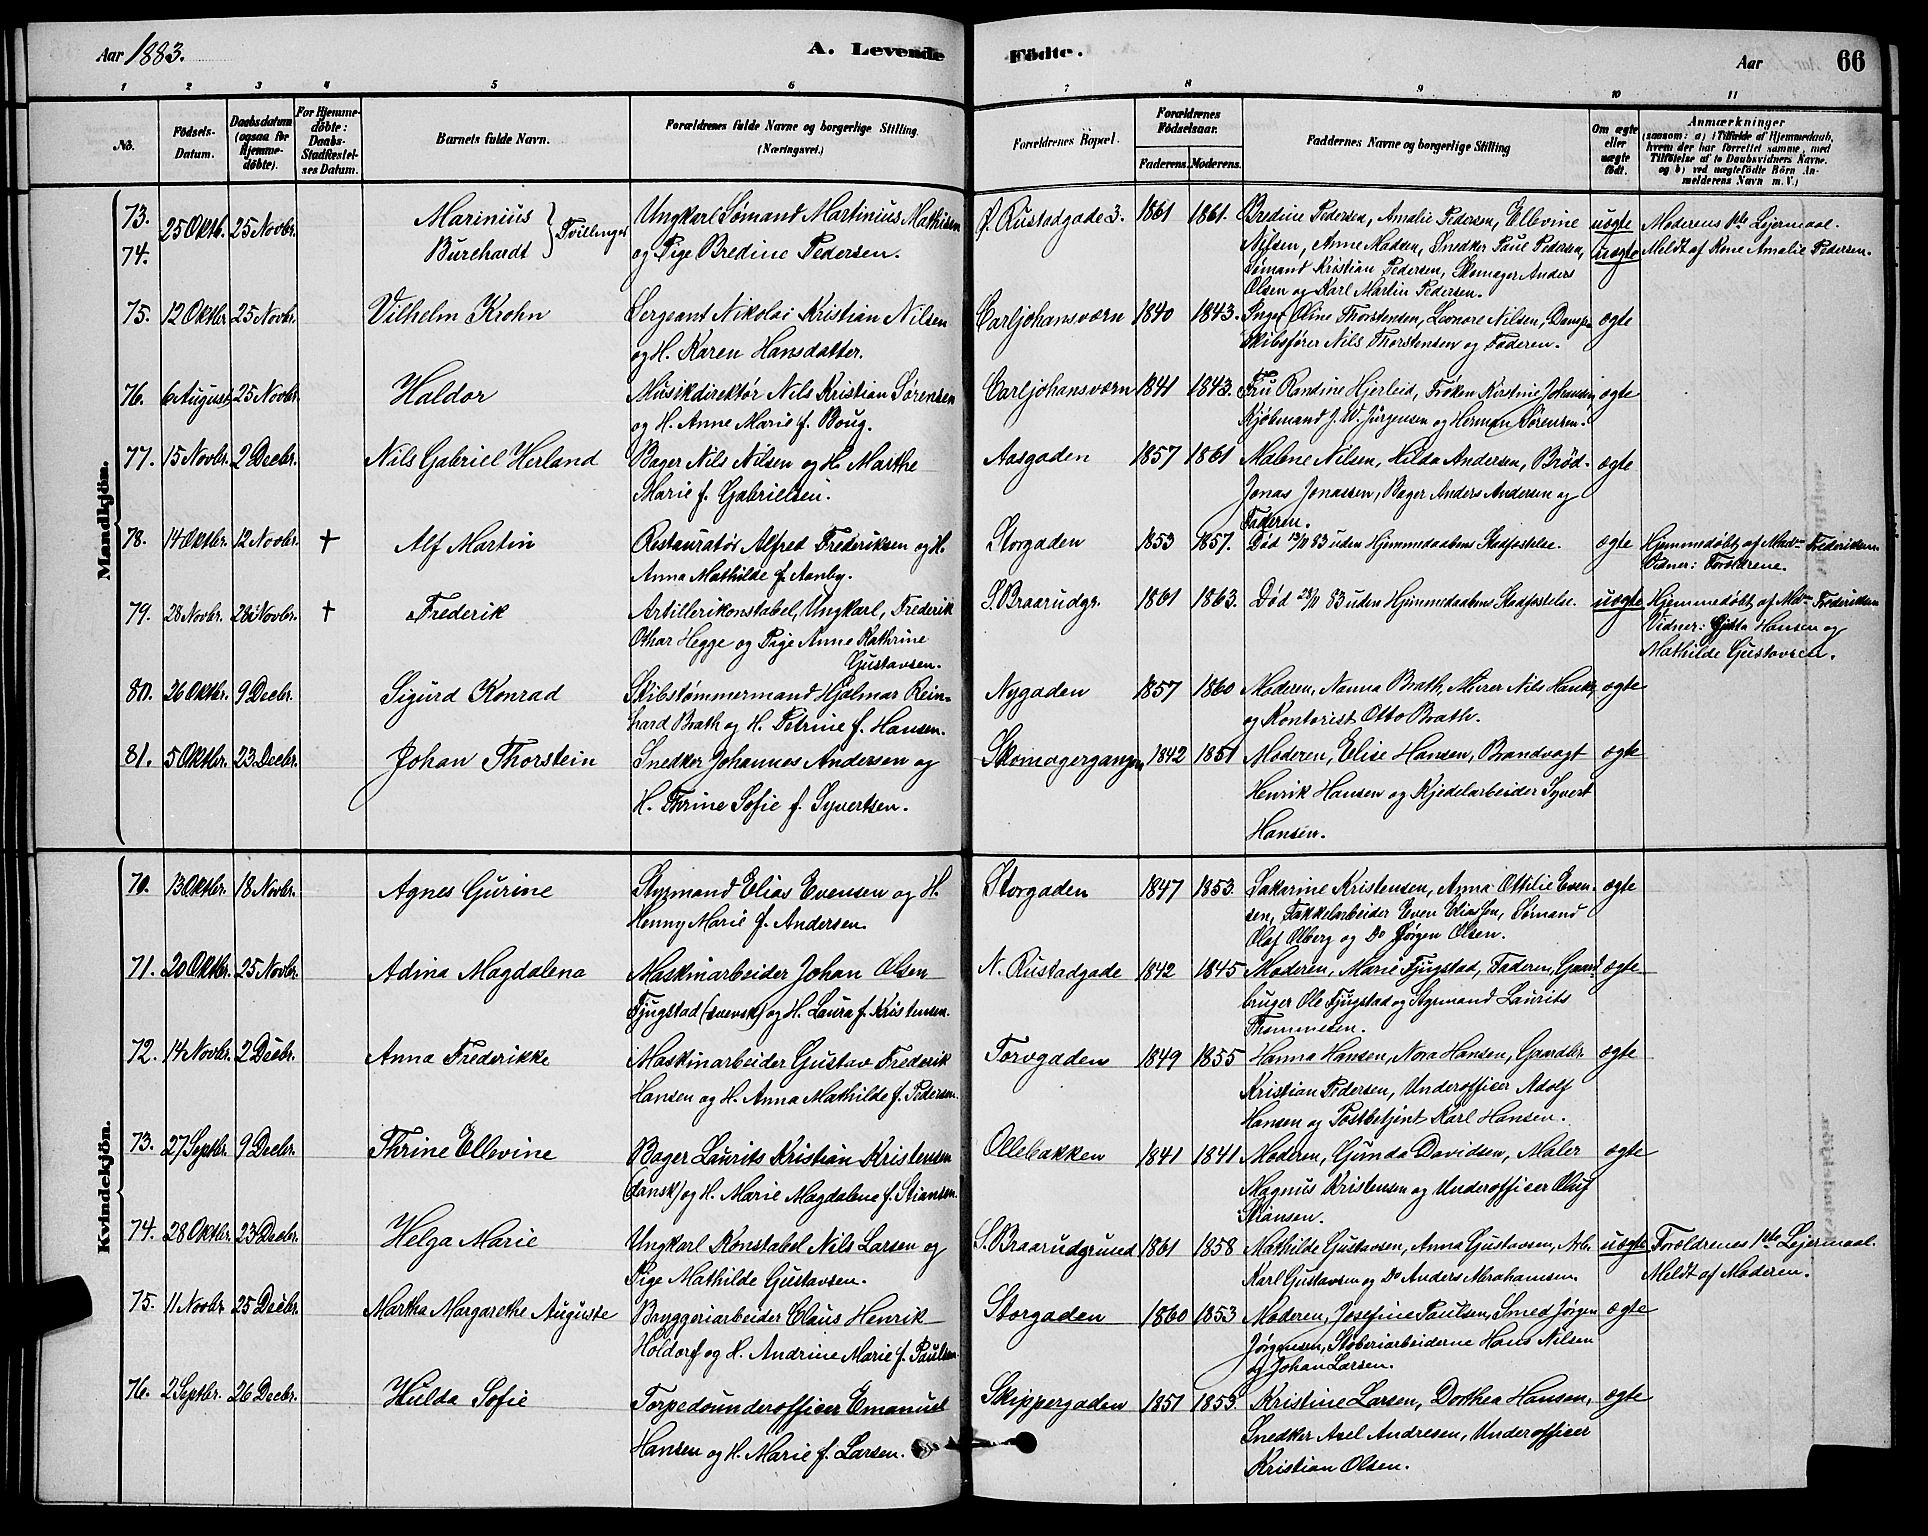 Aar 1883.
A. Levende
Fødte.
Aar
66
1 2 3 4 5 6 7 8 9 10 11
No.
Fødsels-
Datum.
Daabsdatum
(ogsaa for
Hjemme-
døbte).
For Hjemme-
døbte:
Daabs-
Stadfæstel-
ses Datum.
Barnets fulde Navn.
Forældrenes fulde Navne og borgerlige Stilling.
(Næringsvei.)
Forældrenes Bopæl.
Forældrenes
Fødselsaar.
Faderens. Moderens.
Faddernes Navne og borgerlige Stilling
Om ægte
eller
uægte
født.
Anmærkninger
(saasom: a) i Tilfælde af Hjemmedaab,
hvem der har forrettet samme, med
Tilføielse af to Daabsvidners Navne.
og b) ved uægtefødte Børn An-
melderens Navn m. V.)
Mandkjön.
73. 25 Oktb. 25 Novbr. Marinius Tvillinger Ungkarl Sømand Martinius Mathisen Ø. Rustadgade 3. 1861 1861. Bredine Pedersen, Amalie Pedersen, Ellevine uægte Moderens 1ste Lejermaal.
74. Burchardt og Pige Bredine Pedersen. Nilsen, Anne Madsen, Snedker Paul Pedersen, uægte Meldt af Kone Amalie Pedersen.
Sømand Kristian Pedersen, Skomager Anders
Olsen og Karl Martin Pedersen.
75. 12 Oktbr. 25 Novbr. Vilhelm Krohn Sergeant Nikolai Kristian Nilsen Carljohansværn 1840 1843. Inger Oline Thorstensen, Leonore Nilsen, Damp- ægte
og H. Karen Hansdatter. skibsfører Nils Thorstensen og Faderen.
76. 6 August 25 Novbr. Haldor Musikdirektør Nils Kristian Sørensen Carljohansværn 1841 1843. Fru Randine Hjerleid, Frøken Kirstine Johansen ægte
og H. Anne Marie f. Boug. Kjøbmand J. W. Jürgensen og Herman Sørensen.
77. 15 Novbr. 2 Decbr. Nils Gabriel Herland Bager Nils Nilsen og H. Marthe Aasgaden 1857 1861 Malene Nilsen, Hilda Andersen, Brød- ægte
Marie f. Gabrielsen. Jonas Jonassen, Bager Anders Andersen og
Faderen.
78. 14 Oktbr. 12 Novbr. + Alf Martin Restauratør Alfred Frederiksen og H. Storgaden 1853 1857. Død 13/11 83 uden Hjemmedaabens Stadfæstelse. ægte Hjemmedøbt af Madm Frederiksen
Anna Mathilde f. Aanby. Vidner: Forældrene.
79. 28 Novbr. 28 Novbr. + Frederik Artillerikonstabel, Ungkarl, Frederik S. Braarudgr. 1861 1863. Død 28/11 83 uden Hjemmedaabens Stadfæstelse. uægte Hjemmedøbt af Mdm Frederiksen
Othar Hegge og Pige Anne Kathrine Vidner: Hansen og
Gustavsen. Mathilde Gustavsen.
80. 26 Oktbr. 9 Decbr. Sigurd Konrad Skibstømmermand Hjalmar Rein- Nygaden 1857 1860 Moderen, Nanna Brath, Murer Nils Hansen ægte
hard Brath og H. Petrine f. Hansen. og Kontorist Otto Brath.
81. 5 Oktbr. 23 Decbr. Johan Thorstein Snedker Johannes Andersen og Skomagergangen 1842 1851 Moderen, Elise Hansen, Brandvagt ægte
H. Thrine Sofie f. Syvertsen. Henrik Hansen og Kjedelarbeider Syvert
Hansen.
Kvindekjön.
70. 13 Oktbr. 18 Novbr. Agnes Gurine Styrmand Elias Evensen og H. Storgaden 1847 1853. Sakarine Kristensen, Anna Ottilie Even- ægte
Henny Marie f. Andersen. sen, Takkelarbeider Even Eliassen, Sømand
Olaf Olberg og Do Jørgen Olsen.
71. 20 Oktbr. 25 Novbr. Adina Magdalena Maskinarbeider Johan Olsen N. Rustadgade 1842 1845 Moderen, Marie Fjugstad, Faderen, Gaard- ægte
Fjugstad (svensk) og H. Laura f. Kristensen. bruger Ole Fjugstad og Styrmand Laurits
Thommesen.
72. 14 Novbr. 2 Decbr. Anna Frederikke Maskinarbeider Gustav Frederik Torvgaden 1849 1855 Hanna Hansen, Nora Hansen, Gaardbr. ægte
Hansen og H. Anna Mathilde f. Pedersen. Kristian Pedersen, Underofficer Adolf
Hansen og Postbetjent Karl Hansen.
73. 27 Septbr. 9 Decbr. Thrine Ellevine Bager Laurits Kristian Kristensen Ollebakken 1841 1841 Moderen, Gunda Davidsen, Maler ægte
(dansk) og H. Marie Magdalene f. Stiansen. Magnus Kristensen og Underofficer Oluf
Stiansen.
74. 28 Oktbr. 23 Decbr. Helga Marie Ungkarl Konstabel Nils Larsen og S. Braarudgrund 1861 1858 Mathilde Gustavsen, Anna Gustavsen, Arb. uægte Forældrenes 1ste Lejermaal.
Pige Mathilde Gustavsen. Karl Gustavsen og Do Anders Abrahamsen. Meldt af Moderen.
75. 11 Novbr 25 Decbr. Martha Margarethe Auguste Bryggeriarbeider Claus Henrik Storgaden 1860 1853 Moderen, Josefine Paulsen, Smed Jørgen ægte
Holdorf og H. Andrine Marie f. Paulsen. Jørgensen, Støberiarbeiderne Hans Nilsen
og Johan Larsen.
76. 2 Septbr. 26 Decbr. Hulda Sofie Torpedounderofficer Emanuel Skippergaden 1851 1853. Kristine Larsen, Dorthea Hansen, ægte
Hansen og H. Marie f. Larsen. Snedker Axel Andresen, Underofficer
Kristian Olsen.